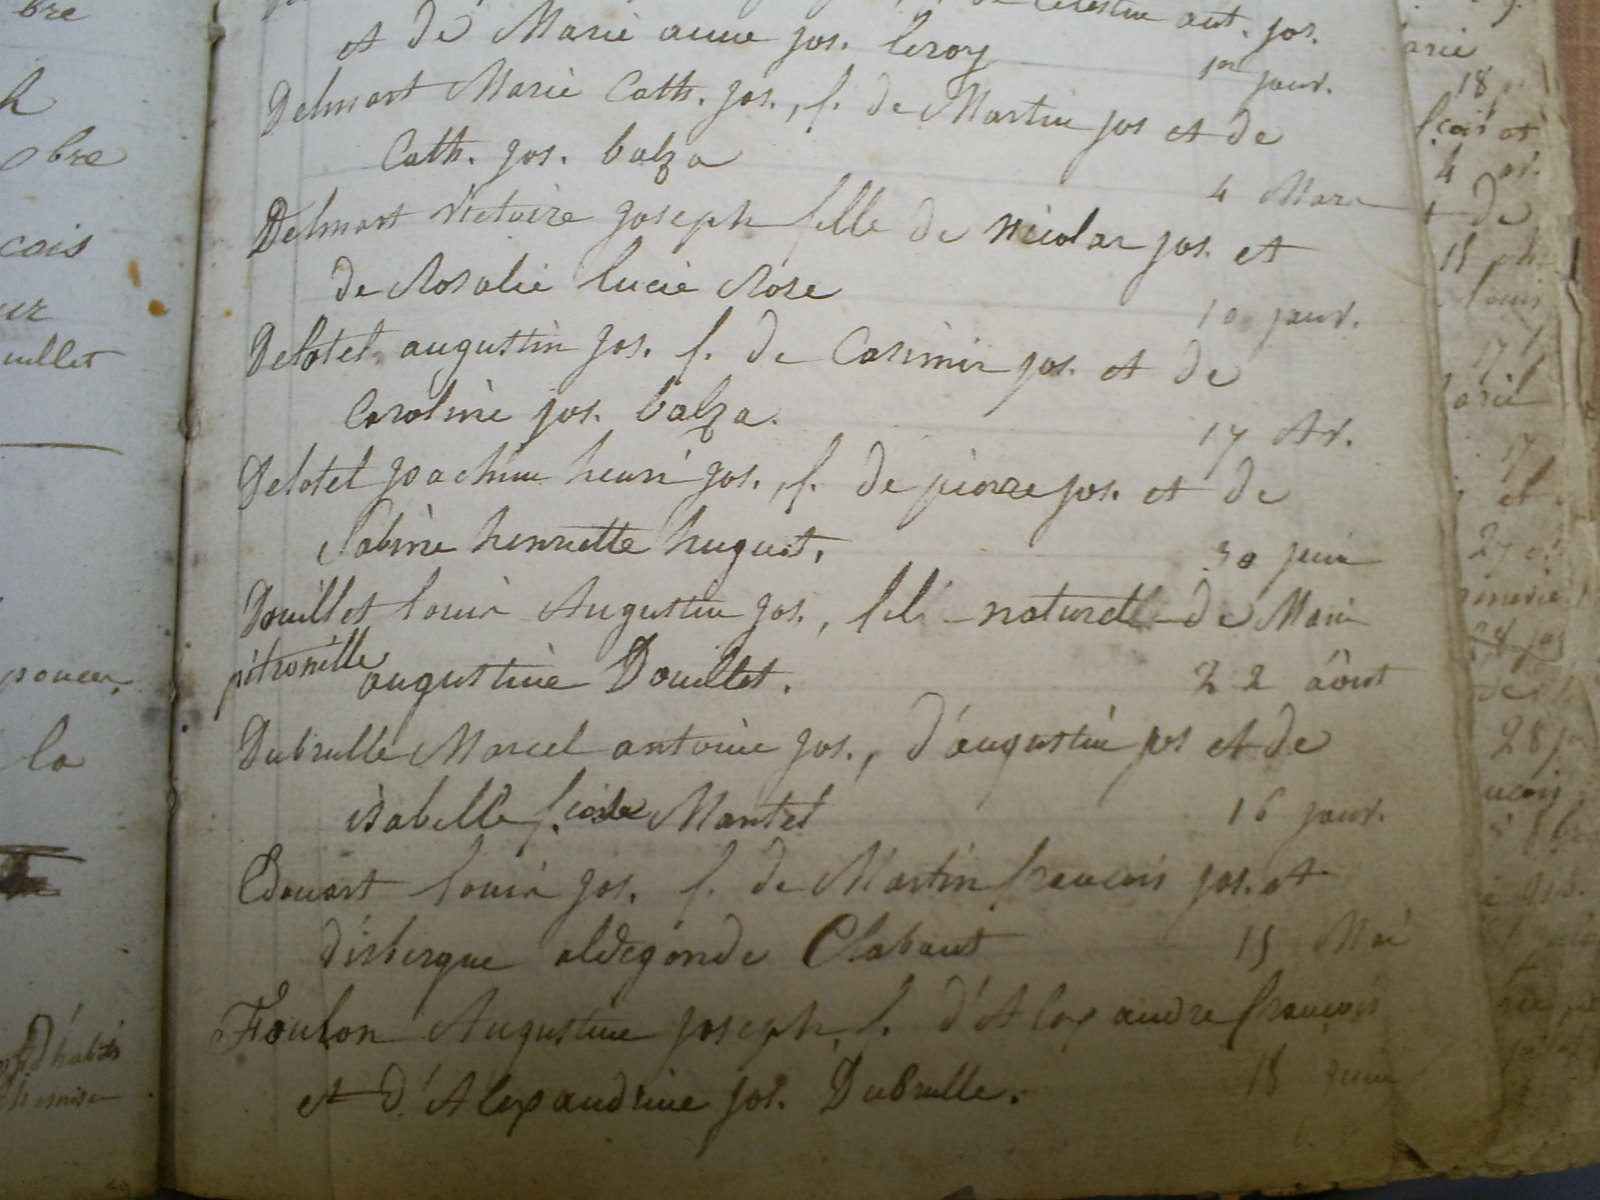 bre
h
obre
cois
uillet
la
de Celestin aut. jos.
et de Marie anne jos. leroy 1er janv.
Delmart Marie Cath. jos., f. de Martin jos et de
Cath. jos. balza 4 Mars
Delmart victoire joseph fille de Nicolas jos. et
de Rosalie lucie Rose 10 janv.
Delotel augustin jos. f. de Casimir jos. et de
Caroline jos. balza. 17 Av.
Delotel joachim henri jos., f. de pierre jos. et de
Sabine henriette huguet. 30 juin
Douillet louis Augustin jos., fils naturel de Marie
pétronille augustine Douillet. 22 août
Dubrulle Marcel antoine jos., d'augustin jos et de
isabelle Mantel 16 janv.
Edouart louis jos. f. de Martin francois jos. et
d'isbergue aldegonde Clabaut 15 Mai
Foulon Augustine joseph, f. d'Alexandre francois
et d'Alexandrine jos. Dubrulle. 18 juin